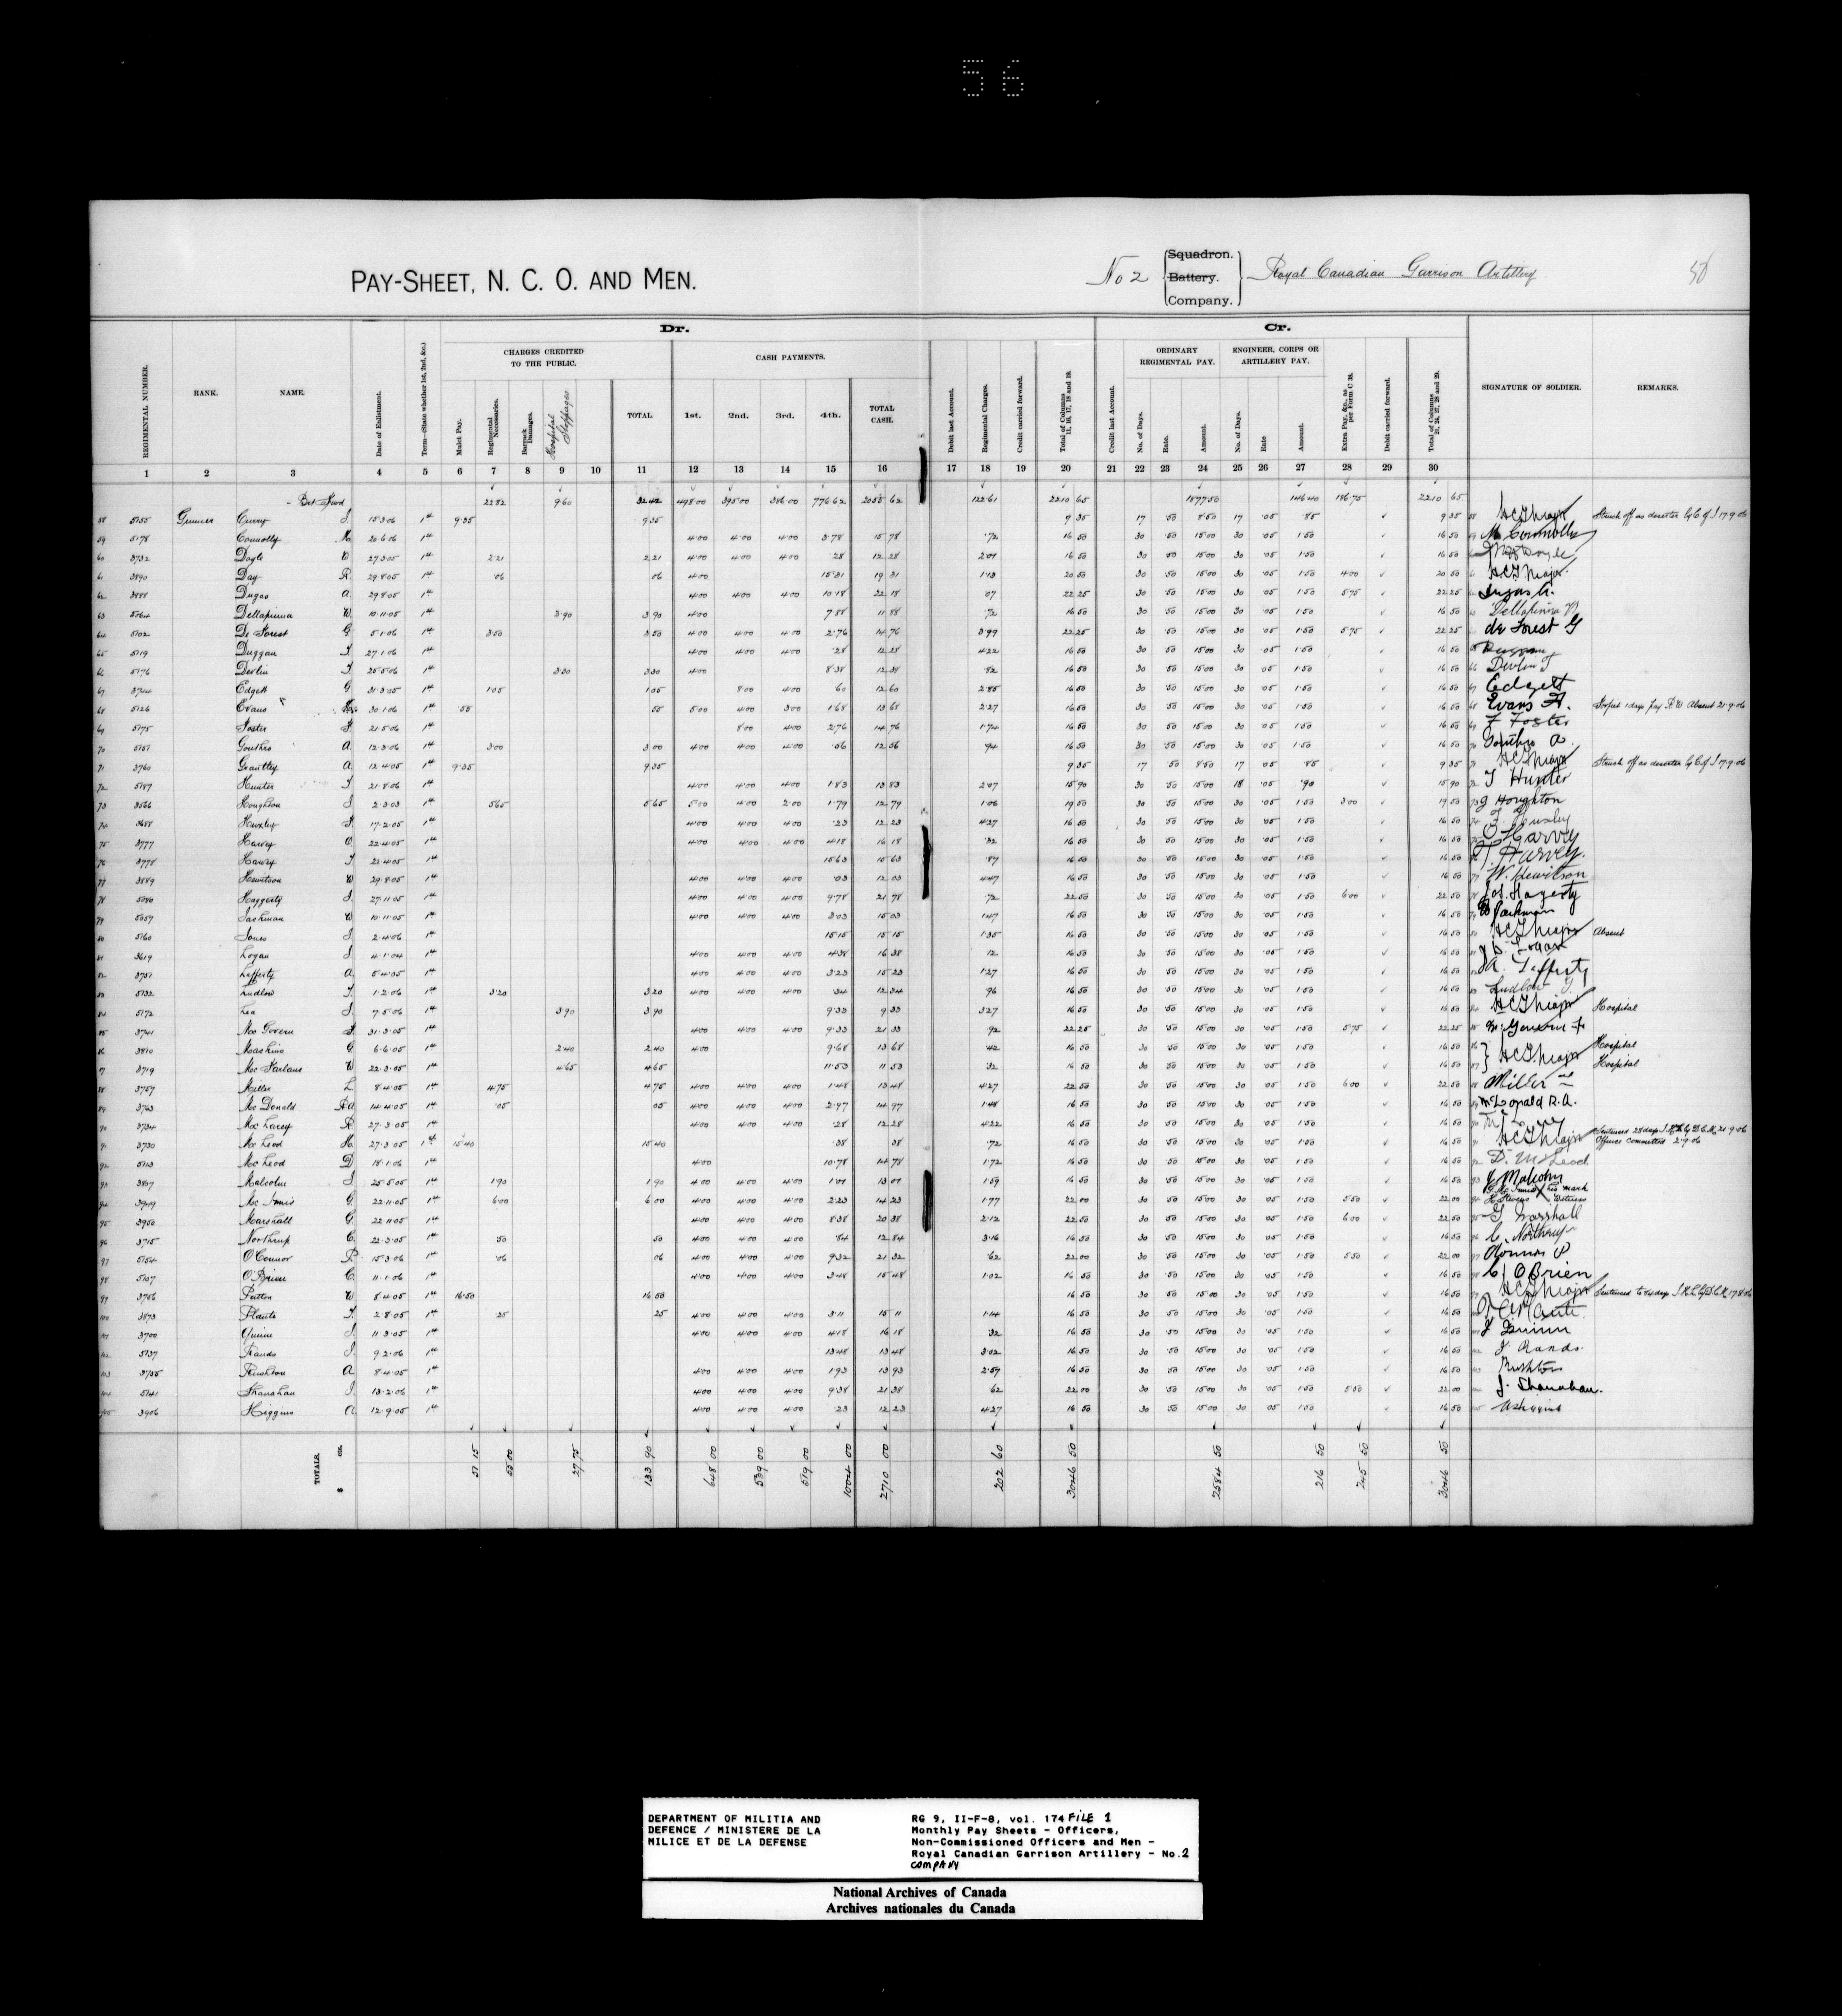 56
PAY-SHEET, N. C. O. AND MEN.
No 2 Squadron. Battery. Company. Royal Canadian Garrison Artillery
Dr. Cr.
CHARGES CREDITED TO THE PUBLIC. CASH PAYMENTS. ORDINARY REGIMENTAL PAY. ENGINEER, CORPS OR ARTILLERY PAY.
REGIMENTAL NUMBER. RANK. NAME. Date of Enlistment. Term—(State whether 1st, 2nd, &c.) Mulct Pay. Regimental Necessaries. Barrack Damages. Hospital Stoppages TOTAL 1st. 2nd. 3rd. 4th. TOTAL CASH. Debit last Account. Regimental Charges. Credit carried forward. Total of Columns 11, 16, 17, 18 and 19. Credit last Account. No. of Days. Rate. Amount. No. of Days. Rate Amount. Extra Pay, &c., as per Form C 38. Debit carried forward. Total of Columns 21, 24, 27, 28 and 29. SIGNATURE OF SOLDIER. REMARKS.
1 2 3 4 5 6 7 8 9 10 11 12 13 14 15 16 17 18 19 20 21 22 23 24 25 26 27 28 29 30
22 82 9 60 32 42 498 00 395 00 386 00 776 62 2055 62 122 61 2210 65 1877 50 146 40 186 75 2210 65
58 5155 Gunner Curry J. 15.3.06 1st 9.35 9 35 9 35 17 .50 8.50 17 .05 .85 9 35 Struck off as deserter by C. of I 17.9.06
59 5178 Connolly M. 20.6.06 1st 4.00 4.00 4.00 3.78 15 78 .72 16 50 30 .50 15.00 30 .05 1.50 16 50 M Connolly
60 3732 Doyle W 27.3.05 1st 2.21 2 21 4.00 4.00 4.00 .28 12 28 2.01 16 50 30 .50 15.00 30 .05 1.50 16 50
61 3890 Day R. 29.8.05 1st .06 06 4.00 15.31 19 31 1.13 20 50 30 .50 15.00 30 .05 1.50 4.00 20 50
62 3888 Dugas A. 29.8.05 1st 4.00 4.00 4.00 10.18 22 18 .07 22 25 30 .50 15.00 30 .05 1.50 5.75 22 25 Dugas A.
63 5064 Dellapinna W. 10.11.05 1st 3.90 3 90 4.00 7.88 11 88 .72 16 50 30 .50 15.00 30 .05 1.50 16 50 Dellapinna W
64 5102 De Forest G. 5.1.06 1st 3.50 3 50 4.00 4.00 4.00 2.76 14 76 3.99 22 25 30 .50 15.00 30 .05 1.50 5.75 22 25 de Forest G
65 5119 Duggan J. 27.1.06 1st 4.00 4.00 4.00 .28 12 28 4.22 16 50 30 .50 15.00 30 .05 1.50 16 50
66 5176 Devlin T. 25.5.06 1st 3.30 3 30 4.00 8.38 12 38 .82 16 50 30 .50 15.00 30 .05 1.50 16 50 Devlin T
67 3744 Edgett G. 31.3.05 1st 1.05 1 05 8.00 4.00 .60 12 60 2.85 16 50 30 .50 15.00 30 .05 1.50 16 50 Edgett
68 5126 Evans 30.1.06 1st .55 55 5.00 4.00 3.00 1.68 13 68 2.27 16 50 30 .50 15.00 30 .05 1.50 16 50 Evans F. Forfeit 1 days pay Absent 21.9.06
69 5175 Foster F. 21.5.06 1st 8.00 4.00 2.76 14 76 1.74 16 50 30 .50 15.00 30 .05 1.50 16 50 F Foster
70 5151 Gouthro A. 12.3.06 1st 3.00 3 00 4.00 4.00 4.00 .56 12 56 .94 16 50 30 .50 15.00 30 .05 1.50 16 50 Gouthro A.
71 3760 Grantley A. 12.4.05 1st 9.35 9 35 9 35 17 .50 8.50 17 .05 .85 9 35 Struck off as deserter by C. of I 17.9.06
72 5187 Hunter T. 21.8.06 1st 4.00 4.00 4.00 1.83 13 83 2.07 15 90 30 .50 15.00 18 .05 .90 15 90 T Hunter
73 3566 Houghton J. 2.3.03 1st 5.65 5 65 5.00 4.00 2.00 1.79 12 79 1.06 19 50 30 .50 15.00 30 .05 1.50 3.00 19 50 J Houghton
74 3688 Huxley F. 17.2.05 1st 4.00 4.00 4.00 .23 12 23 4.27 16 50 30 .50 15.00 30 .05 1.50 16 50 F. Huxley
75 3777 Harvey O. 22.4.05 1st 4.00 4.00 4.00 4.18 16 18 .32 16 50 30 .50 15.00 30 .05 1.50 16 50 O Harvey
76 3778 Harvey T. 21.4.05 1st 15.63 15 63 .87 16 50 30 .50 15.00 30 .05 1.50 16 50 T. Harvey.
77 3889 Hewitson W 29.8.05 1st 4.00 4.00 4.00 .03 12 03 4.47 16 50 30 .50 15.00 30 .05 1.50 16 50 W. Hewitson
78 5080 Haggerty J. 27.11.05 1st 4.00 4.00 4.00 9.78 21 78 .72 22 50 30 .50 15.00 30 .05 1.50 6.00 22 50 Hagerty
79 5057 Jackman W 10.11.05 1st 4.00 4.00 4.00 3.03 15 03 1.47 16 50 30 .50 15.00 30 .05 1.50 16 50 W Jackman
80 5160 Jones J. 2.4.06 1st 15.15 15 15 1.35 16 50 30 .50 15.00 30 .05 1.50 16 50 Absent
81 3619 Logan J. 4.1.04 1st 4.00 4.00 4.00 4.38 16 38 .12 16 50 30 .50 15.00 30 .05 1.50 16 50 Logan
82 3751 Lefferty A. 5.4.05 1st 4.00 4.00 4.00 3.23 15 23 1.27 16 50 30 .50 15.00 30 .05 1.50 16 50 A. Lefferty
83 5132 Ludlow T. 1.2.06 1st 3.20 3 20 4.00 4.00 4.00 .34 12 34 .96 16 50 30 .50 15.00 30 .05 1.50 16 50 Ludlow T.
84 5172 Lea J. 7.5.06 1st 3.90 3 90 9.33 9 33 3.27 16 50 30 .50 15.00 30 .05 1.50 16 50 Hospital
85 3741 Mc Govern F. 31.3.05 1st 4.00 4.00 4.00 9.33 21 33 .92 22 25 30 .50 15.00 30 .05 1.50 5.75 22 25 McGovern F
86 3810 Machins G 6.6.05 1st 2.40 2 40 4.00 9.68 13 68 .42 16 50 30 .50 15.00 30 .05 1.50 16 50 Hospital
87 3719 Mc Farlane W 22.3.05 1st 4.65 4 65 11.53 11 53 .32 16 50 30 .50 15.00 30 .05 1.50 16 50 Hospital
88 3757 Miller L. 8.4.05 1st 4.75 4 75 4.00 4.00 4.00 1.48 13 48 4.27 22 50 30 .50 15.00 30 .05 1.50 6.00 22 50 Miller
89 3763 Mc Donald R.A. 14.4.05 1st .05 05 4.00 4.00 4.00 2.97 14 97 1.48 16 50 30 .50 15.00 30 .05 1.50 16 50 McDonald R.A.
90 3734 Mc Larey R. 27.3.05 1st 4.00 4.00 4.00 .28 12 28 4.22 16 50 30 .50 15.00 30 .05 1.50 16 50
91 3730 Mc Leod H. 27.3.05 1st 15.40 15 40 .38 38 .72 16 50 30 .50 15.00 30 .05 1.50 16 50 Sentenced 28 days 21.9.06 Offence committed 2.9.06
92 5113 Mc Leod D 18.1.06 1st 4.00 10.78 14 78 1.72 16 50 30 .50 15.00 30 .05 1.50 16 50 D. McLeod.
93 3807 Malcolm J. 25.5.05 1st 1.90 1 90 4.00 4.00 4.00 1.01 13 01 1.59 16 50 30 .50 15.00 30 .05 1.50 16 50 J Malcolm
94 3949 Mc Innis G. 22.11.05 1st 6.00 6 00 4.00 4.00 4.00 2.23 14 23 1.77 22 00 30 .50 15.00 30 .05 1.50 5.50 22 00 G. Mc Innis X his mark H Stevens Witness
95 3950 Marshall G. 22.11.05 1st 4.00 4.00 4.00 8.38 20 38 2.12 22 50 30 .50 15.00 30 .05 1.50 6.00 22 50 G. Marshall
96 3715 Northrup C. 21.3.05 1st .50 50 4.00 4.00 4.00 .84 12 84 3.16 16 50 30 .50 15.00 30 .05 1.50 16 50 C. Northrup
97 5154 O'Connor P. 15.3.06 1st .06 06 4.00 4.00 4.00 9.32 21 32 .62 22 00 30 .50 15.00 30 .05 1.50 5.50 22 00 OConnor P
98 5107 O'Brien C. 11.1.06 1st 4.00 4.00 4.00 3.48 15 48 1.02 16 50 30 .50 15.00 30 .05 1.50 16 50 C OBrien
99 3756 Patton W 8.4.05 1st 16.50 16 50 16 50 30 .50 15.00 30 .05 1.50 16 50
100 3873 Plante T. 2.8.05 1st .25 25 4.00 4.00 4.00 3.11 15 11 1.14 16 50 30 .50 15.00 30 .05 1.50 16 50
101 3700 Quinn J. 11.3.05 1st 4.00 4.00 4.00 4.18 16 18 .32 16 50 30 .50 15.00 30 .05 1.50 16 50 J Quinn
102 5137 Rands J. 9.2.06 1st 13.48 13 48 3.02 16 50 30 .50 15.00 30 .05 1.50 16 50 J Rands.
103 3755 Rushton A. 8.4.05 1st 4.00 4.00 4.00 1.93 13 93 2.57 16 50 30 .50 15.00 30 .05 1.50 16 50 Rushton
104 5141 Shanahan J. 13.2.06 1st 4.00 4.00 4.00 9.38 21 38 .62 22 00 30 .50 15.00 30 .05 1.50 5.50 22 00 J. Shanahan.
105 3906 Higgins A. 12.9.05 1st 4.00 4.00 4.00 .23 12 23 4.27 16 50 30 .50 15.00 30 .05 1.50 16 50
TOTALS. $ cts. 51 15 55 00 27 75 133 90 648 00 539 00 519 00 1004 00 2710 00 202 60 3046 50 2584 50 216 50 245 50 3046 50
DEPARTMENT OF MILITIA AND
DEFENCE / MINISTERE DE LA
MILICE ET DE LA DEFENSE
RG 9, II-F-8, vol. 174 FILE 1
Monthly Pay Sheets - Officers,
Non-Commissioned Officers and Men -
Royal Canadian Garrison Artillery - No.2
COMPANY
National Archives of Canada
Archives nationales du Canada